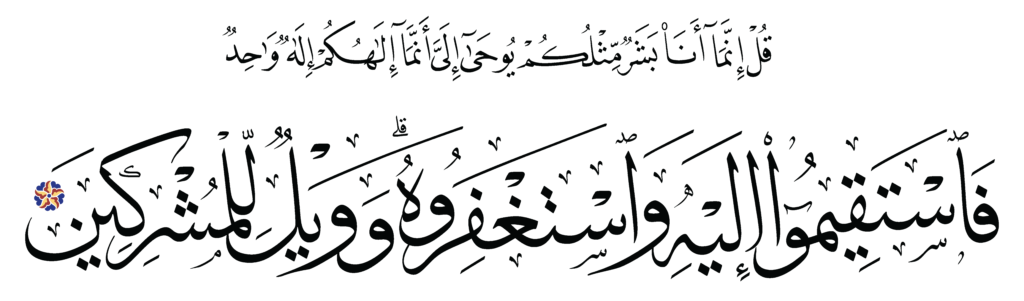 قُلْ إِنَّمَآ أَنَا۠ بَشَرٌ مِّثْلُكُمْ يُوحَىٰٓ إِلَىَّ أَنَّمَآ إِلَٰهُكُمْ إِلَٰهٌ وَٰحِدٌ
فَٱسْتَقِيمُوٓا۟ إِلَيْهِ وَٱسْتَغْفِرُوهُ ۗ وَوَيْلٌ لِّلْمُشْرِكِينَ